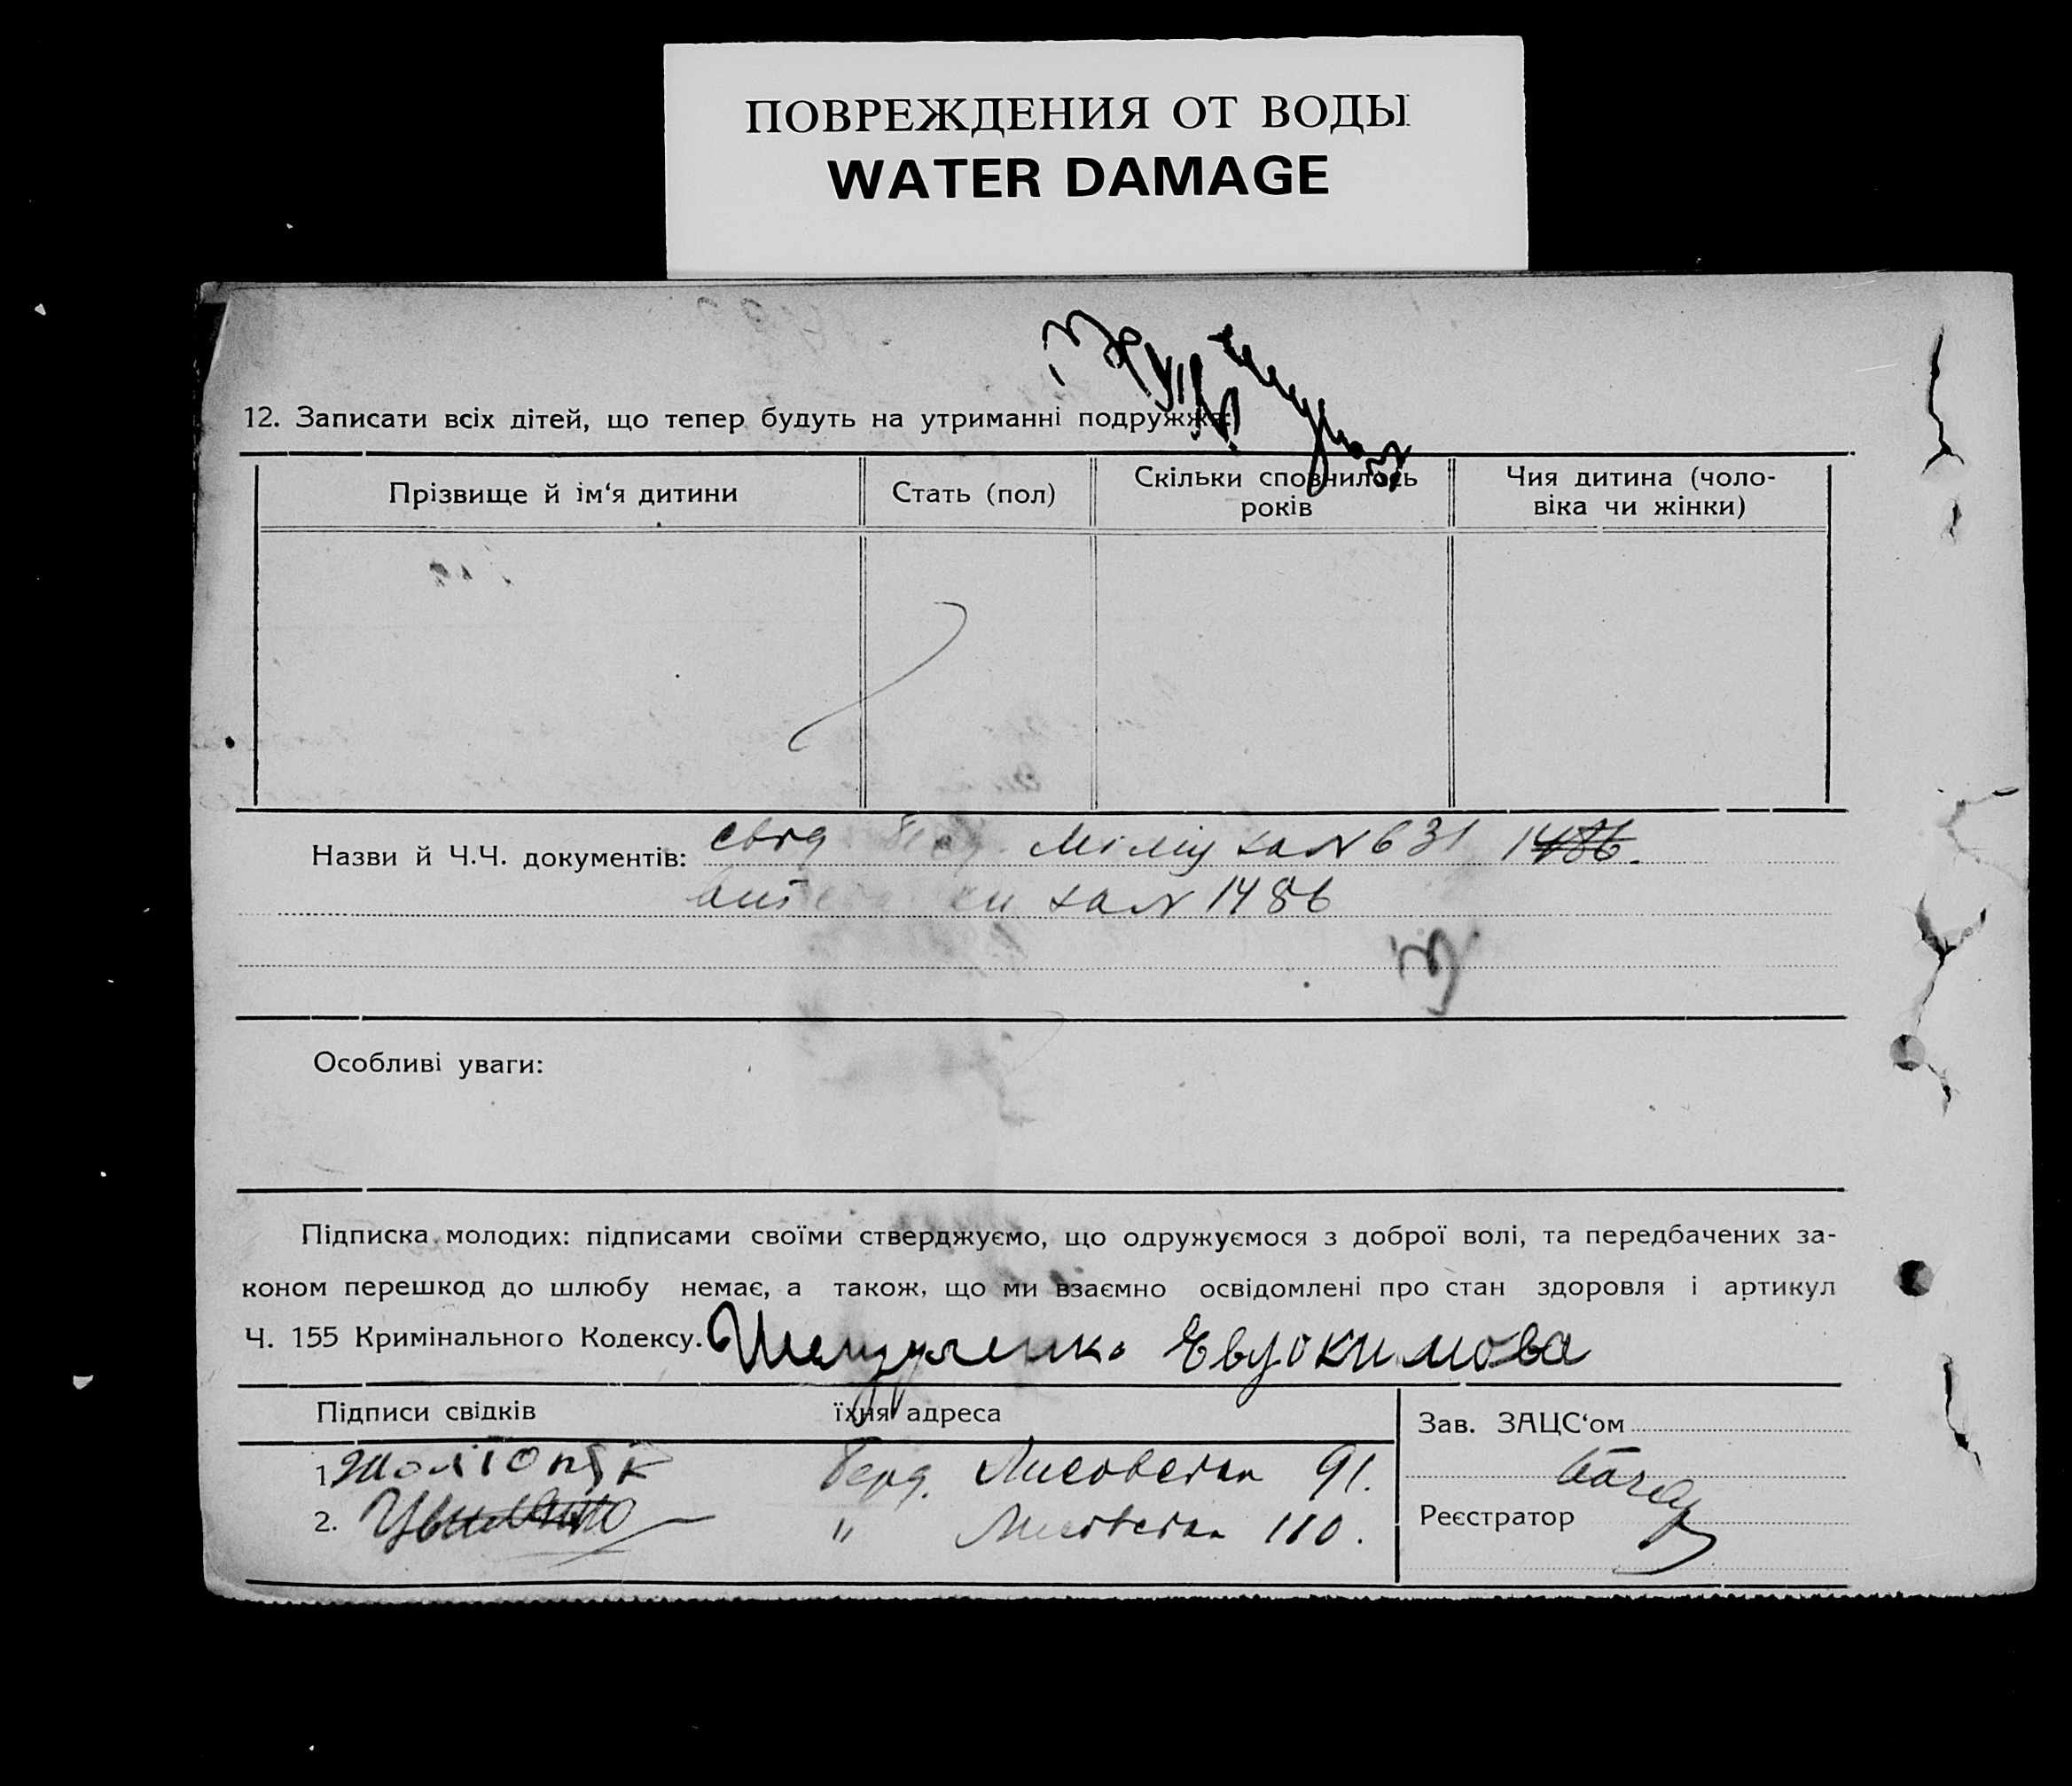 ПОВРЕЖДЕНИЯ ОТ ВОДЫ
WATER DAMAGE
12. Записати всіх дітей, що тепер будуть на утриманні подружжя:
Прізвище й ім‘я дитини
Стать (пол)
Скільки сповнилось
років
Чия дитина (чоло-
віка чи жінки)
Назви й Ч.Ч. документів: свід Міліц за N 631 1486.
за N 1486
Особливі уваги:
Підписка молодих: підписами своїми стверджуємо, що одружуємося з доброї волі, та передбачених за-
коном перешкод до шлюбу немає, а також, що ми взаємно освідомлені про стан здоровля і артикул
Ч. 155 Кримінального Кодексу. Евдокимова
Підписи свідків їхня адреса
Зав. ЗАЦС‘ом
1. Берд. 91.
2. " 110.
Реєстратор